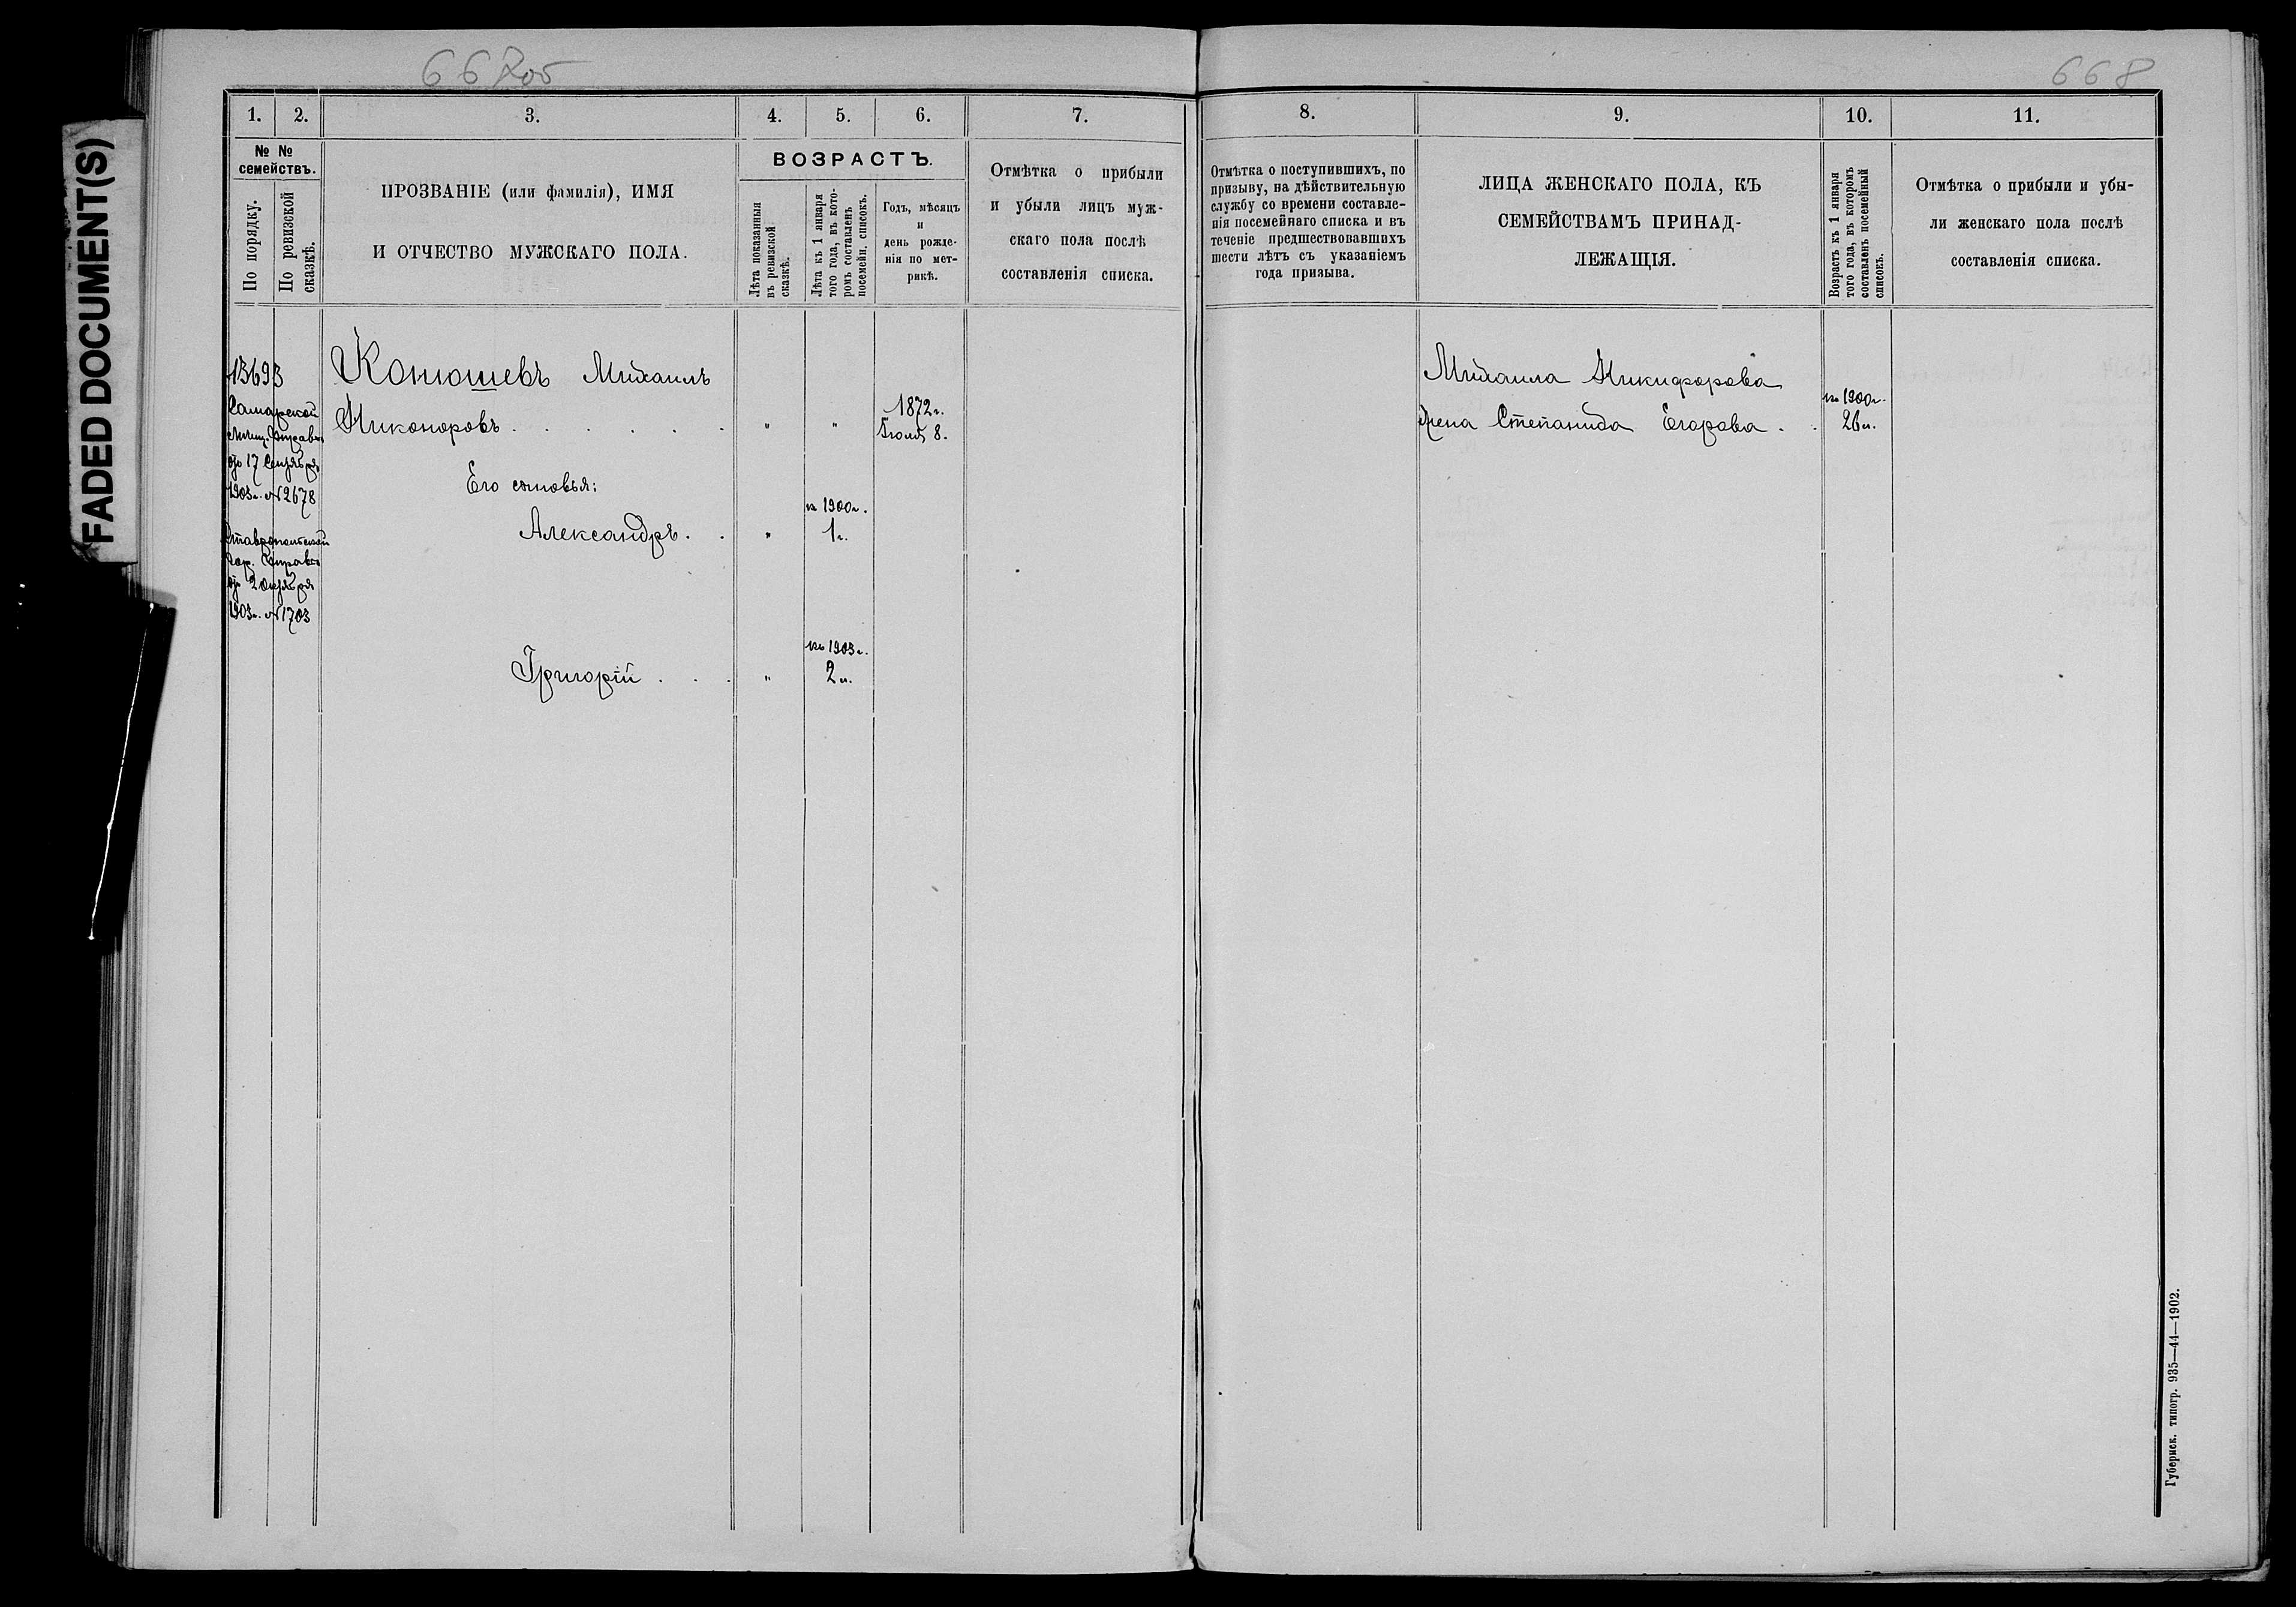 667об
668
FADED DOCUMENT(S)
1. 2. 3. 4. 5. 6. 7. 8. 9. 10. 11.
№ №
семействъ.
По порядку.
По ревизской
сказкѣ.
ПРОЗВАНІЕ (или фамилія), ИМЯ
И ОТЧЕСТВО МУЖСКАГО ПОЛА.
ВОЗРАСТЪ.
Лѣта показанныя
въ ревизской
сказкѣ.
Лѣта къ 1 января
того года, въ кото-
ромъ составленъ
посемейн. списокъ.
Годъ, мѣсяцъ
и
день рожде-
нія по мет-
рикѣ.
Отмѣтка о прибыли
и убыли лицъ муж-
скаго пола послѣ
составленія списка.
Отмѣтка о поступившихъ, по
призыву, на дѣйствительную
службу со времени составле-
нія посемейнаго списка и въ
теченіе предшествовавшихъ
шести лѣтъ съ указаніемъ
года призыва.
ЛИЦА ЖЕНСКАГО ПОЛА, КЪ
СЕМЕЙСТВАМЪ ПРИНАД-
ЛЕЖАЩІЯ.
Возрастъ къ 1 января
того года, въ которомъ
составленъ посемейный
списокъ.
Отмѣтка о прибыли и убы-
ли женскаго пола послѣ
составленія списка.
13693
Самарской
Мѣщ. Управы
отъ 17 Сентября
1903г. №2678
Ставропольской
Гор. Управы
отъ 2 Октября
1903г. №1703
Конюшевъ Михаилъ
Никоноровъ . . . . . . " "
1872г.
Іюля 8.
Его сыновья:
къ 1900г.
Александръ . . " 1г.
къ 1903г.
Григорій . . . " 2г.
Михаила Никифорова
жена Степанида Егорова . .
къ 1900г.
26л.
Губернск. типогр. 935—44—1902.